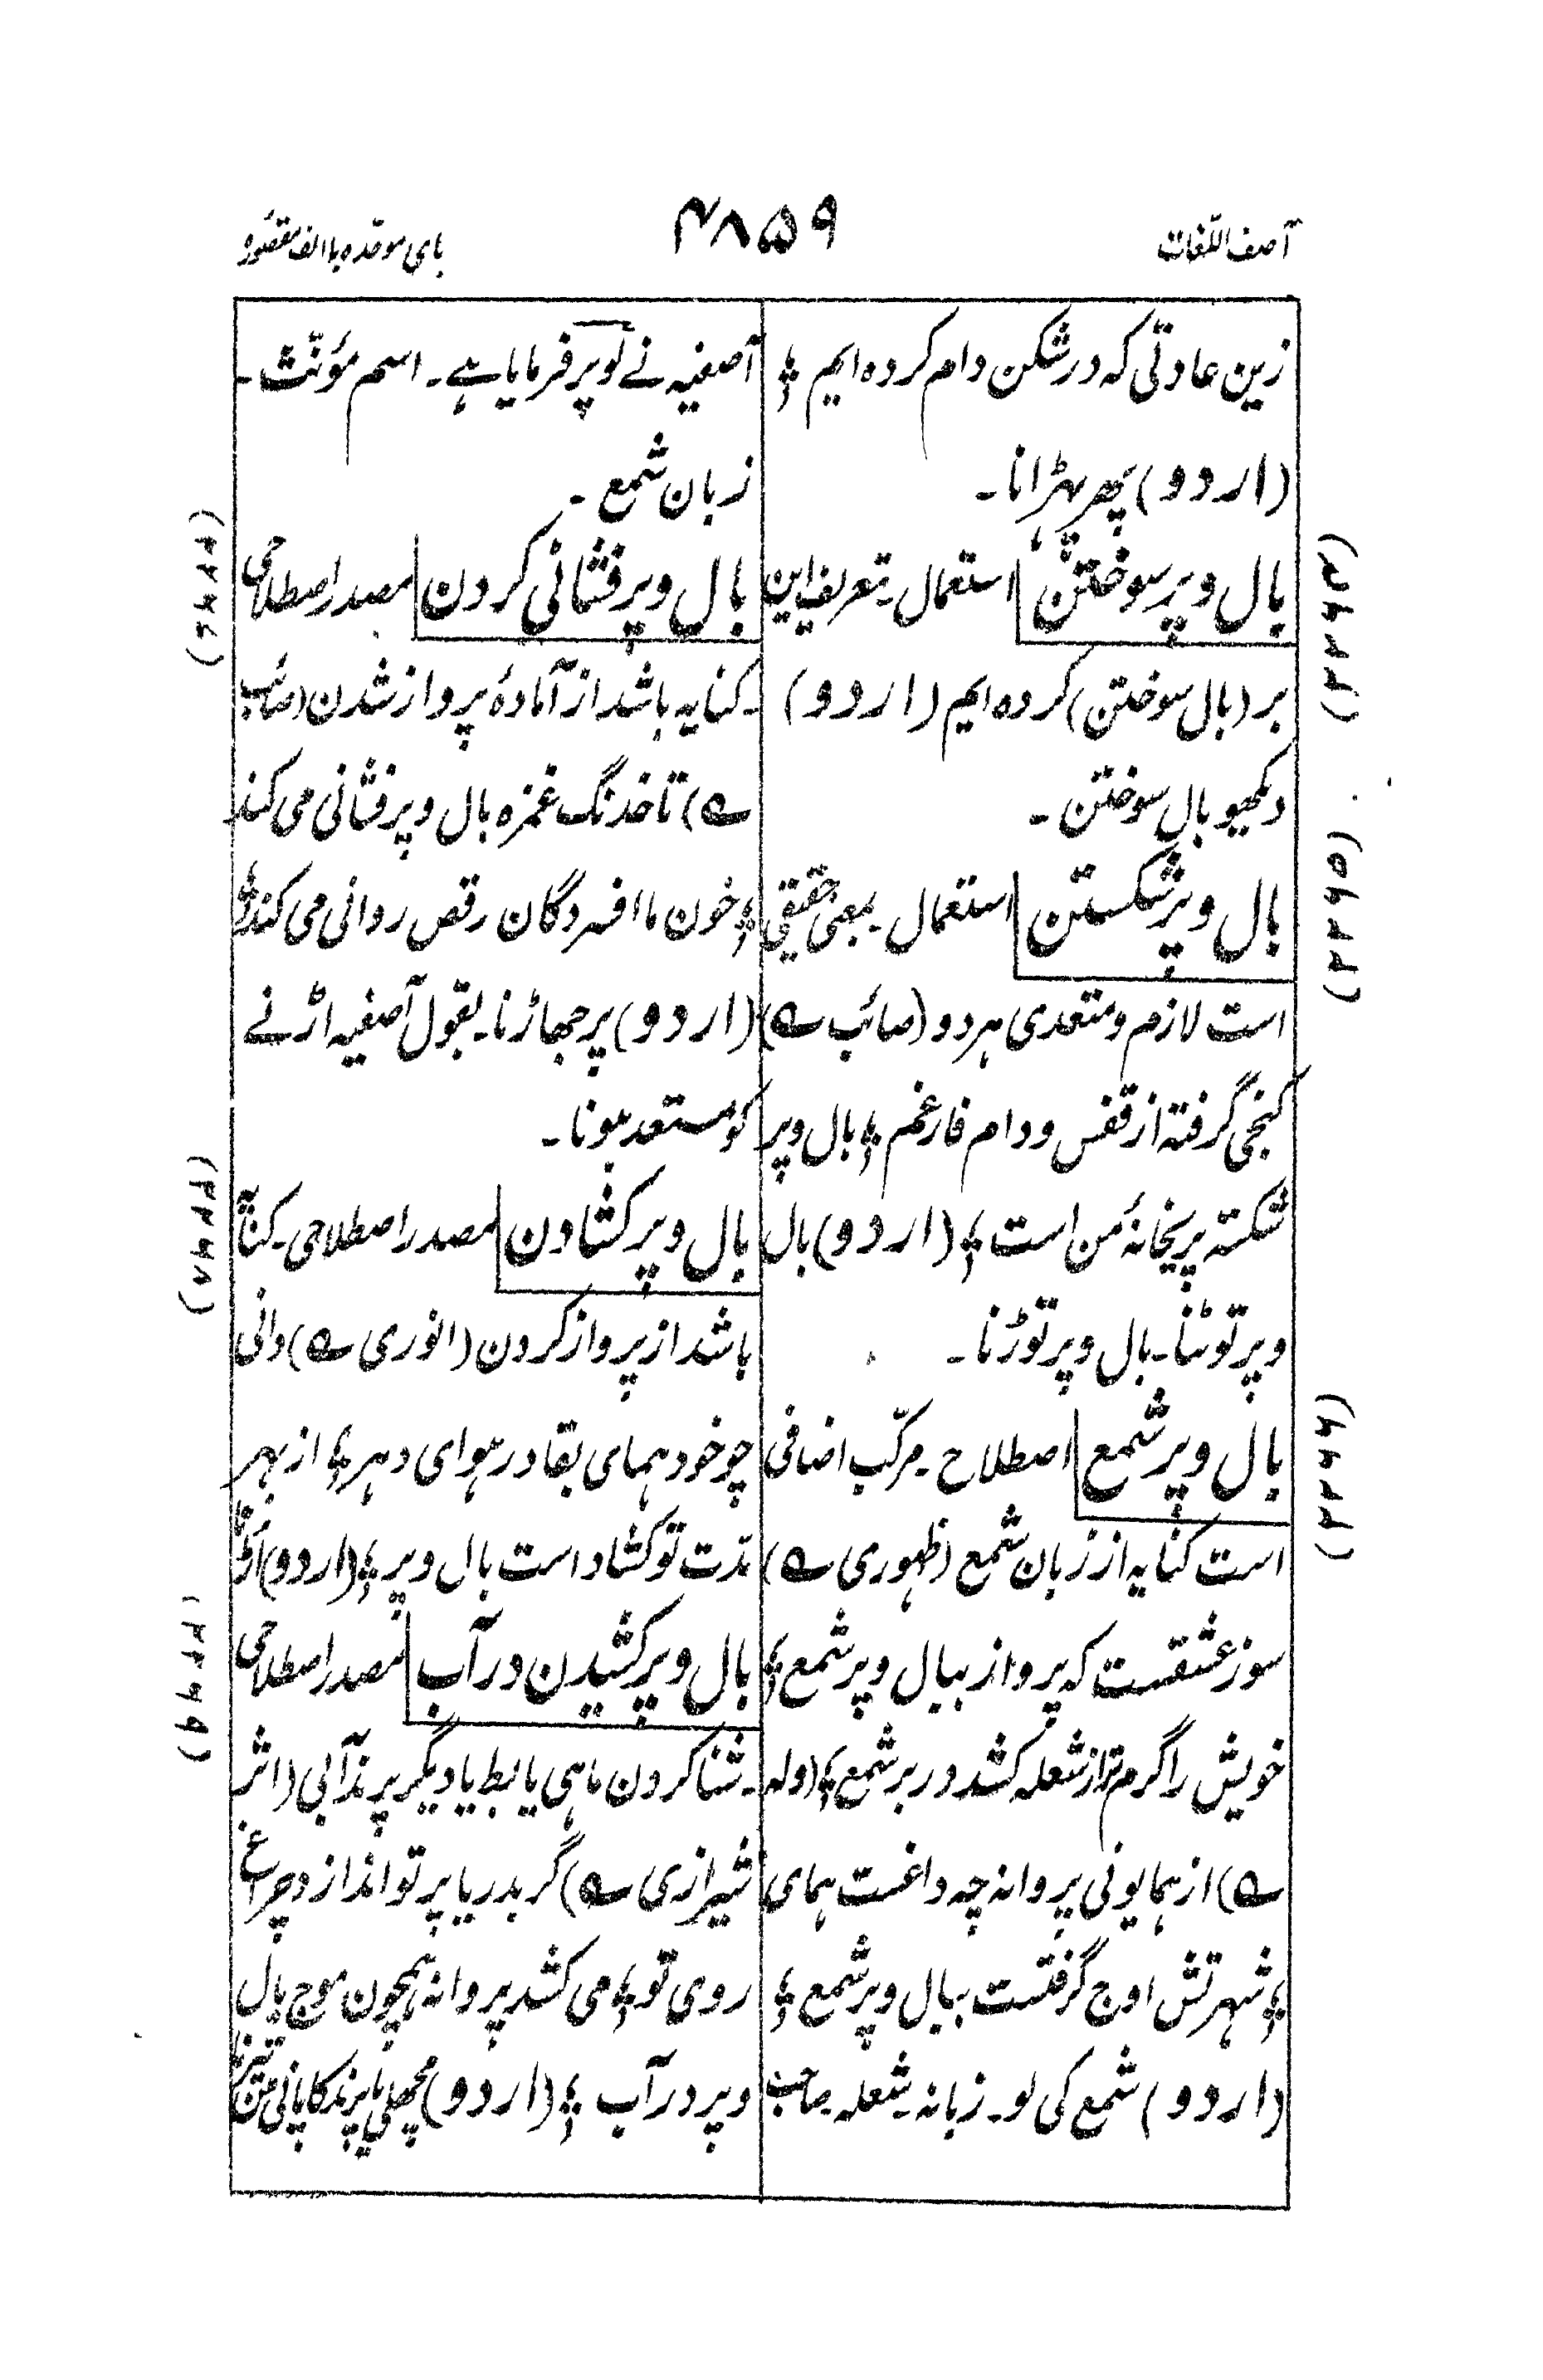 آصف اللّغات
۴۸۵۹
بای موحّده با الف مقصوره
زین عادتی که در شکن دام کرده ایم ؛
(اردو) پھڑپھڑانا۔
بال و پر سوختن استعمال۔ تعریف این
بر (بال سوختن) کرده ایم (اردو)
دیکھو بال سوختن۔
بال و پر شکستن استعمال۔ بمعنی حقیقی
است لازم و متعدی هر دو (صائب ے)
کنجی گرفته از قفس و دام فارغم ؛ بال و پر
شکسته پریخانۂ من است ؛ (اردو) بال
و پر ٹوٹنا۔ بال و پر توڑنا۔
بال و پر شمع اصطلاح۔ مرکّب اضافی
است کنایه از زبان شمع (ظهوری ے)
سوز عشقست که پرواز ببال و پر شمع ؛
خویش را گرم تر از شعله کشد در بر شمع ؛ (وله
ے) از همایونی پروانه چه داغست همای
؛ شهرتش اوج گرفتست ببال و پر شمع ؛
(اردو) شمع کی لو۔ زبانہ۔ شعلہ۔ صاحب
(۴۴۶۴)
(۴۴۶۵)
(۴۴۶۶)
آصفیہ نے لو پر فرمایا ہے۔ اسم مؤنّث۔
زبان شمع۔
بال و پر فشانی کردن مصدر اصطلاحی
۔ کنایه باشد از آمادۂ پرواز شدن (صائب
ے) تا خدنگ غمزه بال و پر فشانی می کند
؛ خون ما افسردگان رقص روانی می کند ؛
(اردو) پر جھاڑنا۔ بقول آصفیہ اڑنے
کو مستعد ہونا۔
بال و پر کشادن مصدر اصطلاحی۔ کنایة
باشد از پرواز کردن (انوری ے) دانی
چو خود همای بقا در هوای دهر ؛ از بهر
مدّت تو کشاد است بال و پر ؛ (اردو) اڑنا
بال و پر کشیدن در آب مصدر اصطلاحی
۔ شنا کردن ماهی یا بط یا دیگر پرند آبی (اثر
شیرازی ے) گر بدریا پرتو اندازد چراغ
روی تو ؛ می کشد پروانه همچون موج بال
و پر در آب ؛ (اردو) مچھلی یا پرند کا پانی مین تیرنا
(۴۴۶۷)
(۴۴۶۸)
(۴۴۶۹)